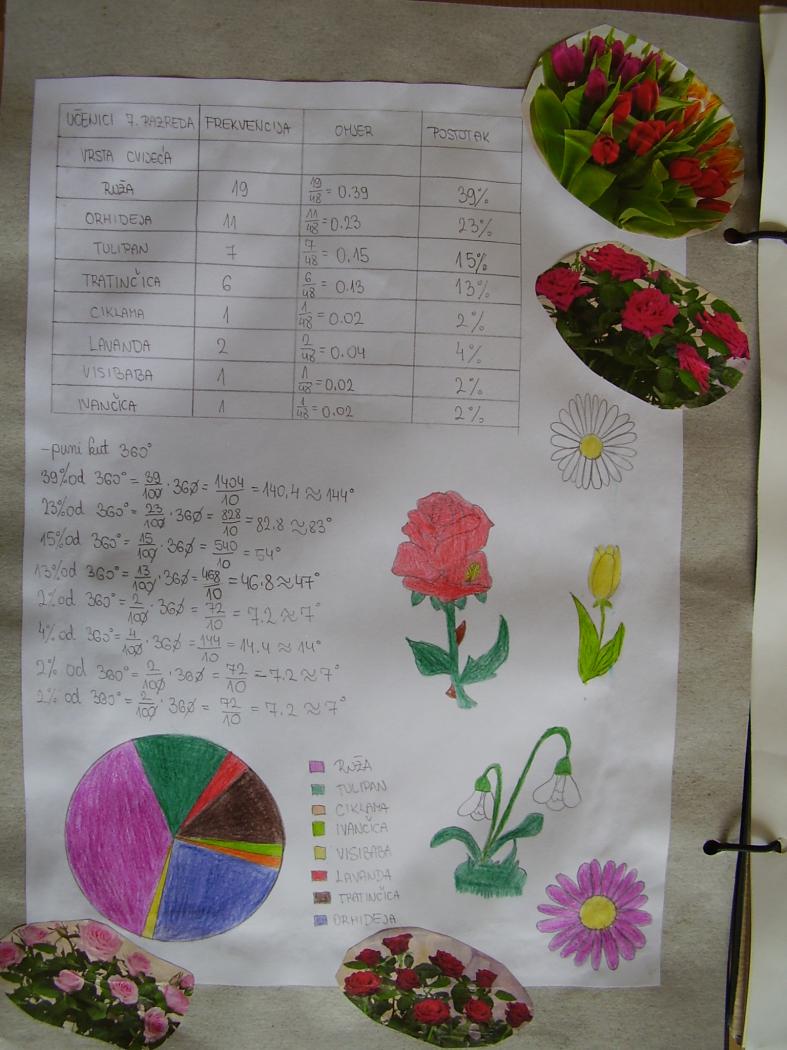 UČENICI 7. RAZREDA FREKVENCIJA OMJER POSTOTAK
VRSTA CVIJEĆA
RUŽA 19 19/48 = 0.39 39%
ORHIDEJA 11 11/48 = 0.23 23%
TULIPAN 7 7/48 = 0.15 15%
TRATINČICA 6 6/48 = 0.13 13%
CIKLAMA 1 1/48 = 0.02 2%
LAVANDA 2 2/48 = 0.04 4%
VISIBABA 1 1/48 = 0.02 2%
IVANČICA 1 1/48 = 0.02 2%
-puni kut 360°
39% od 360° = 39/100 · 360 = 1404/10 = 140,4 ≈ 144°
23% od 360° = 23/100 · 360 = 828/10 = 82.8 ≈ 83°
15% od 360° = 15/100 · 360 = 540/10 = 54°
13% od 360° = 13/100 · 360 = 468/10 = 46.8 ≈ 47°
2% od 360° = 2/100 · 360 = 72/10 = 7.2 ≈ 7°
4% od 360° = 4/100 · 360 = 144/10 = 14.4 ≈ 14°
2% od 360° = 2/100 · 360 = 72/10 = 7.2 ≈ 7°
2% od 360° = 2/100 · 360 = 72/10 = 7.2 ≈ 7°
RUŽA
TULIPAN
CIKLAMA
IVANČICA
VISIBABA
LAVANDA
TRATINČICA
ORHIDEJA